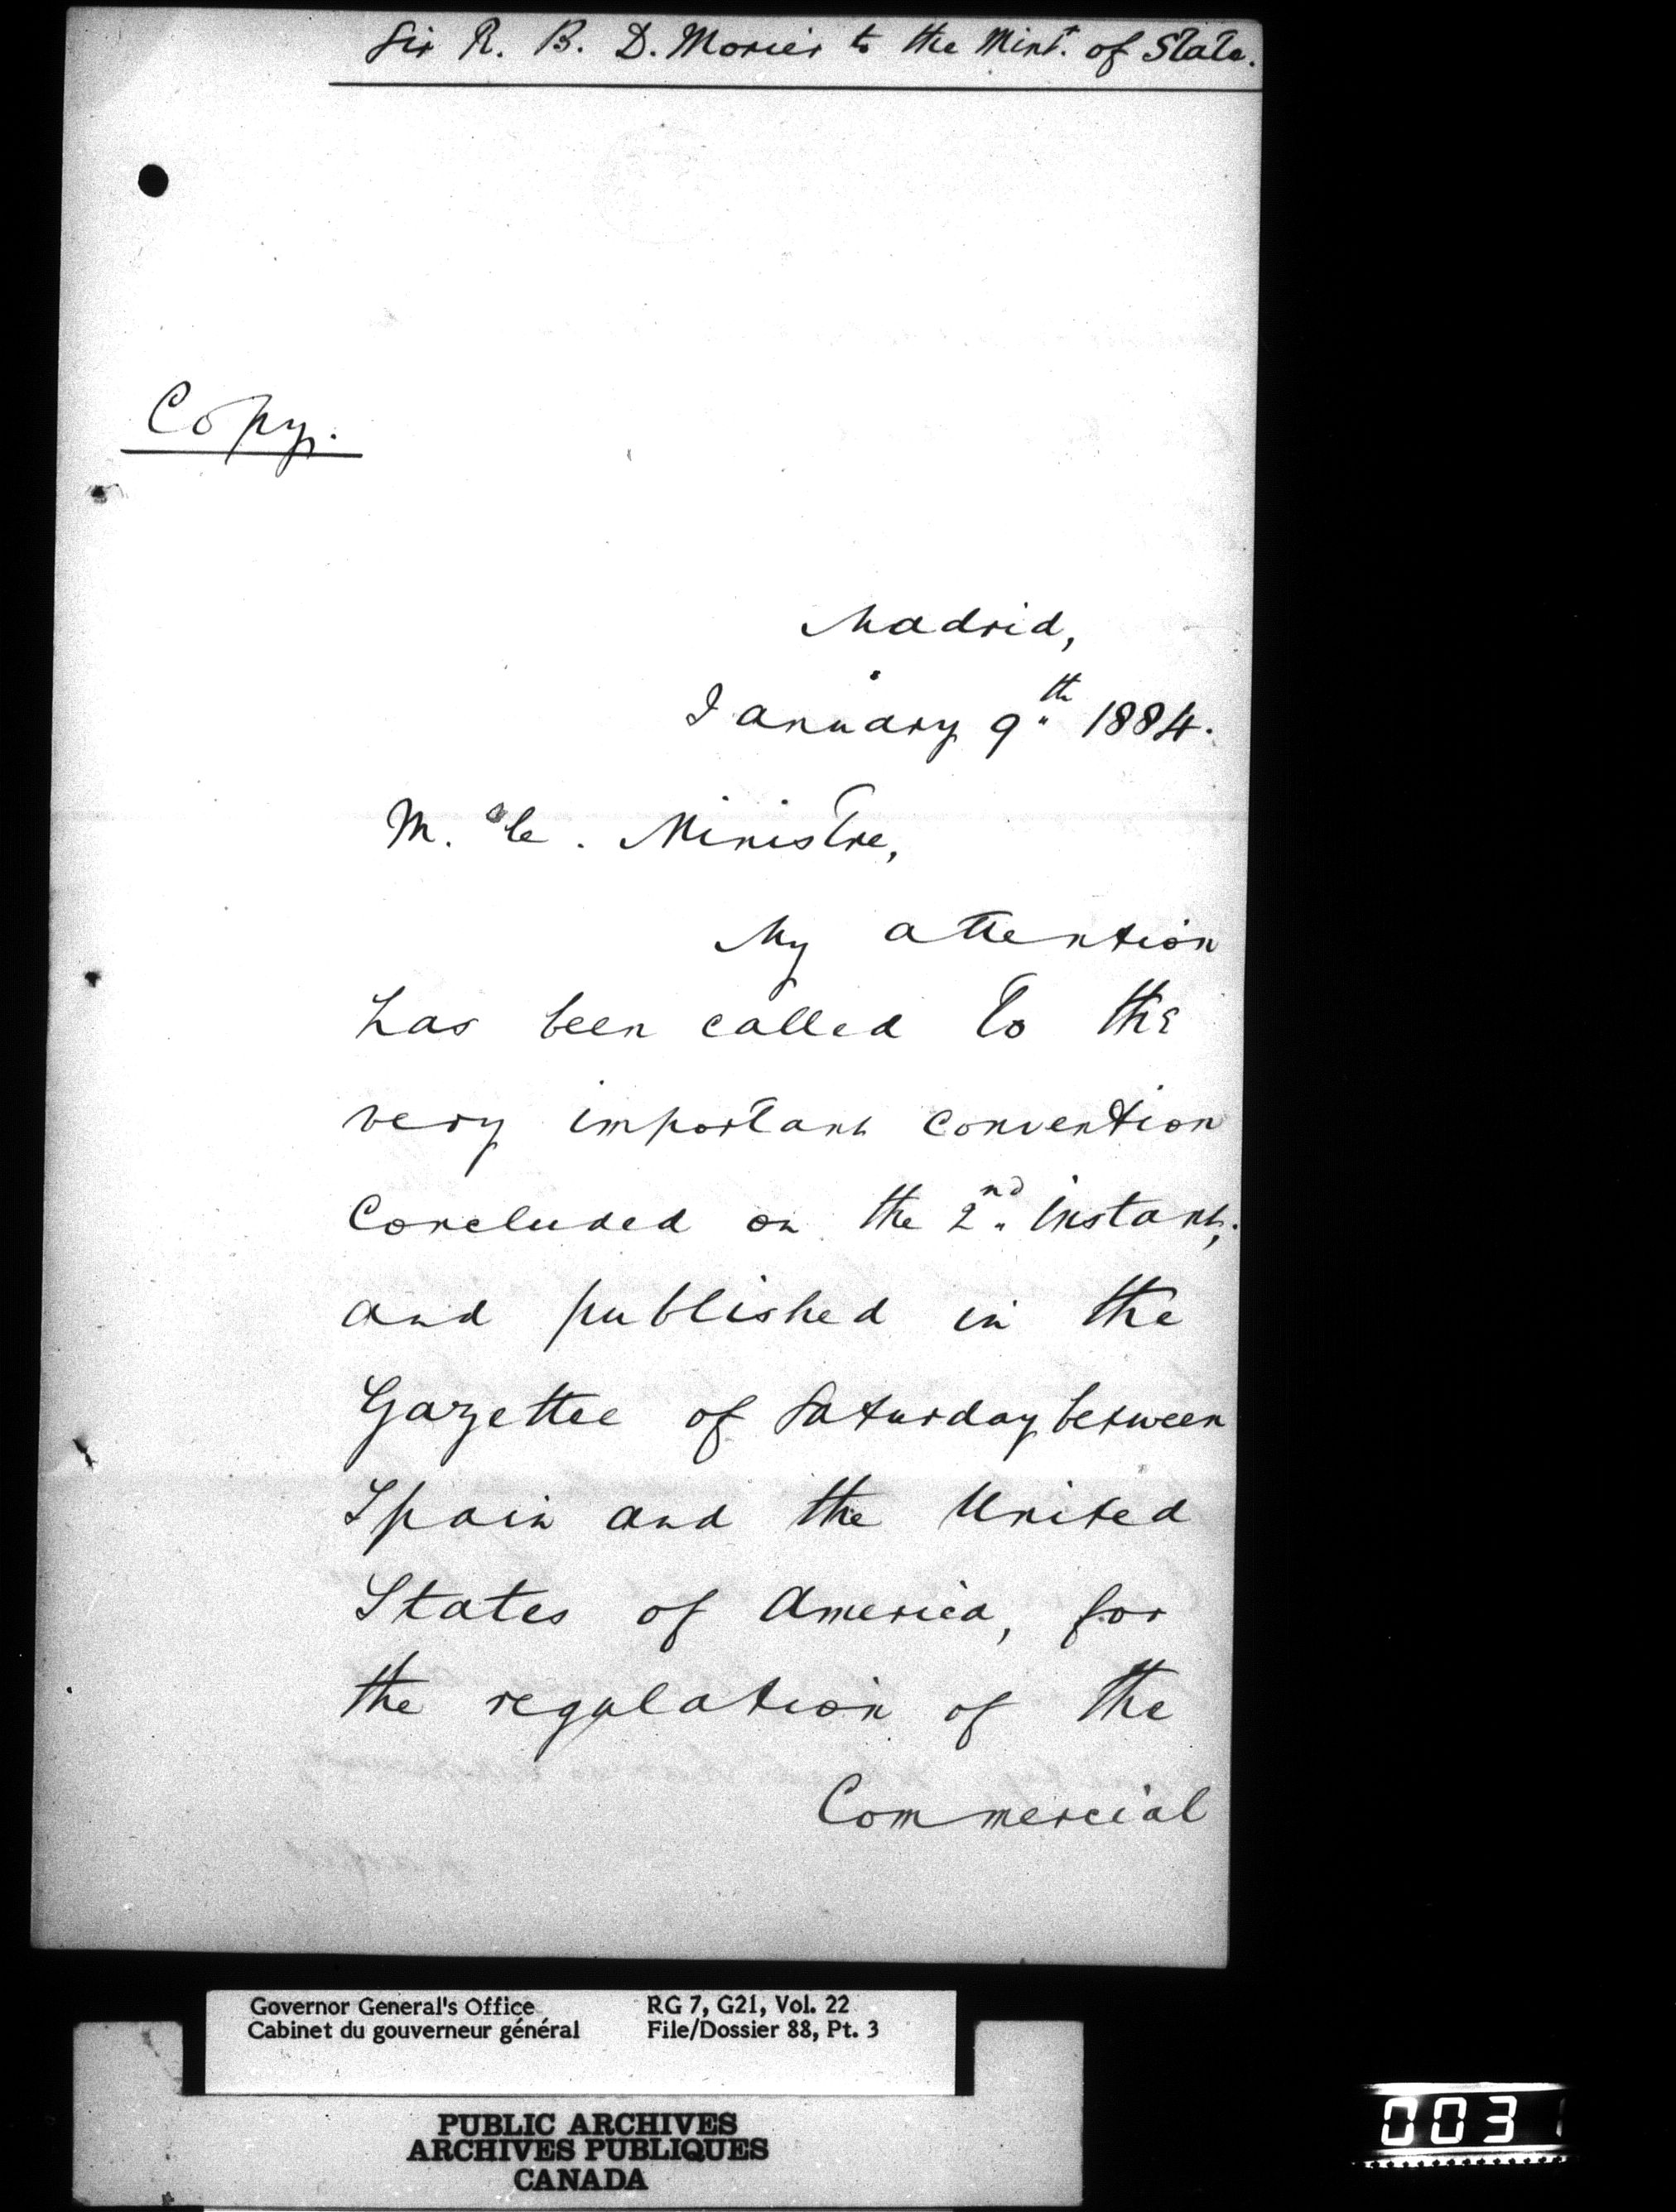 Sir R. B. D. Morier to the Minr. of State.
Copy.
Madrid,
January 9th 1884.
M. le. Ministre,
My attention
has been called to the
very important convention
concluded on the 2nd instant,
and published in the
Gazettee of Saturday between
Spain and the United
States of America, for
the regulation of the
Commercial
Governor General's Office
Cabinet du gouverneur général
RG 7, G21, Vol. 22
File/Dossier 88, Pt. 3
PUBLIC ARCHIVES
ARCHIVES PUBLIQUES
CANADA
0031